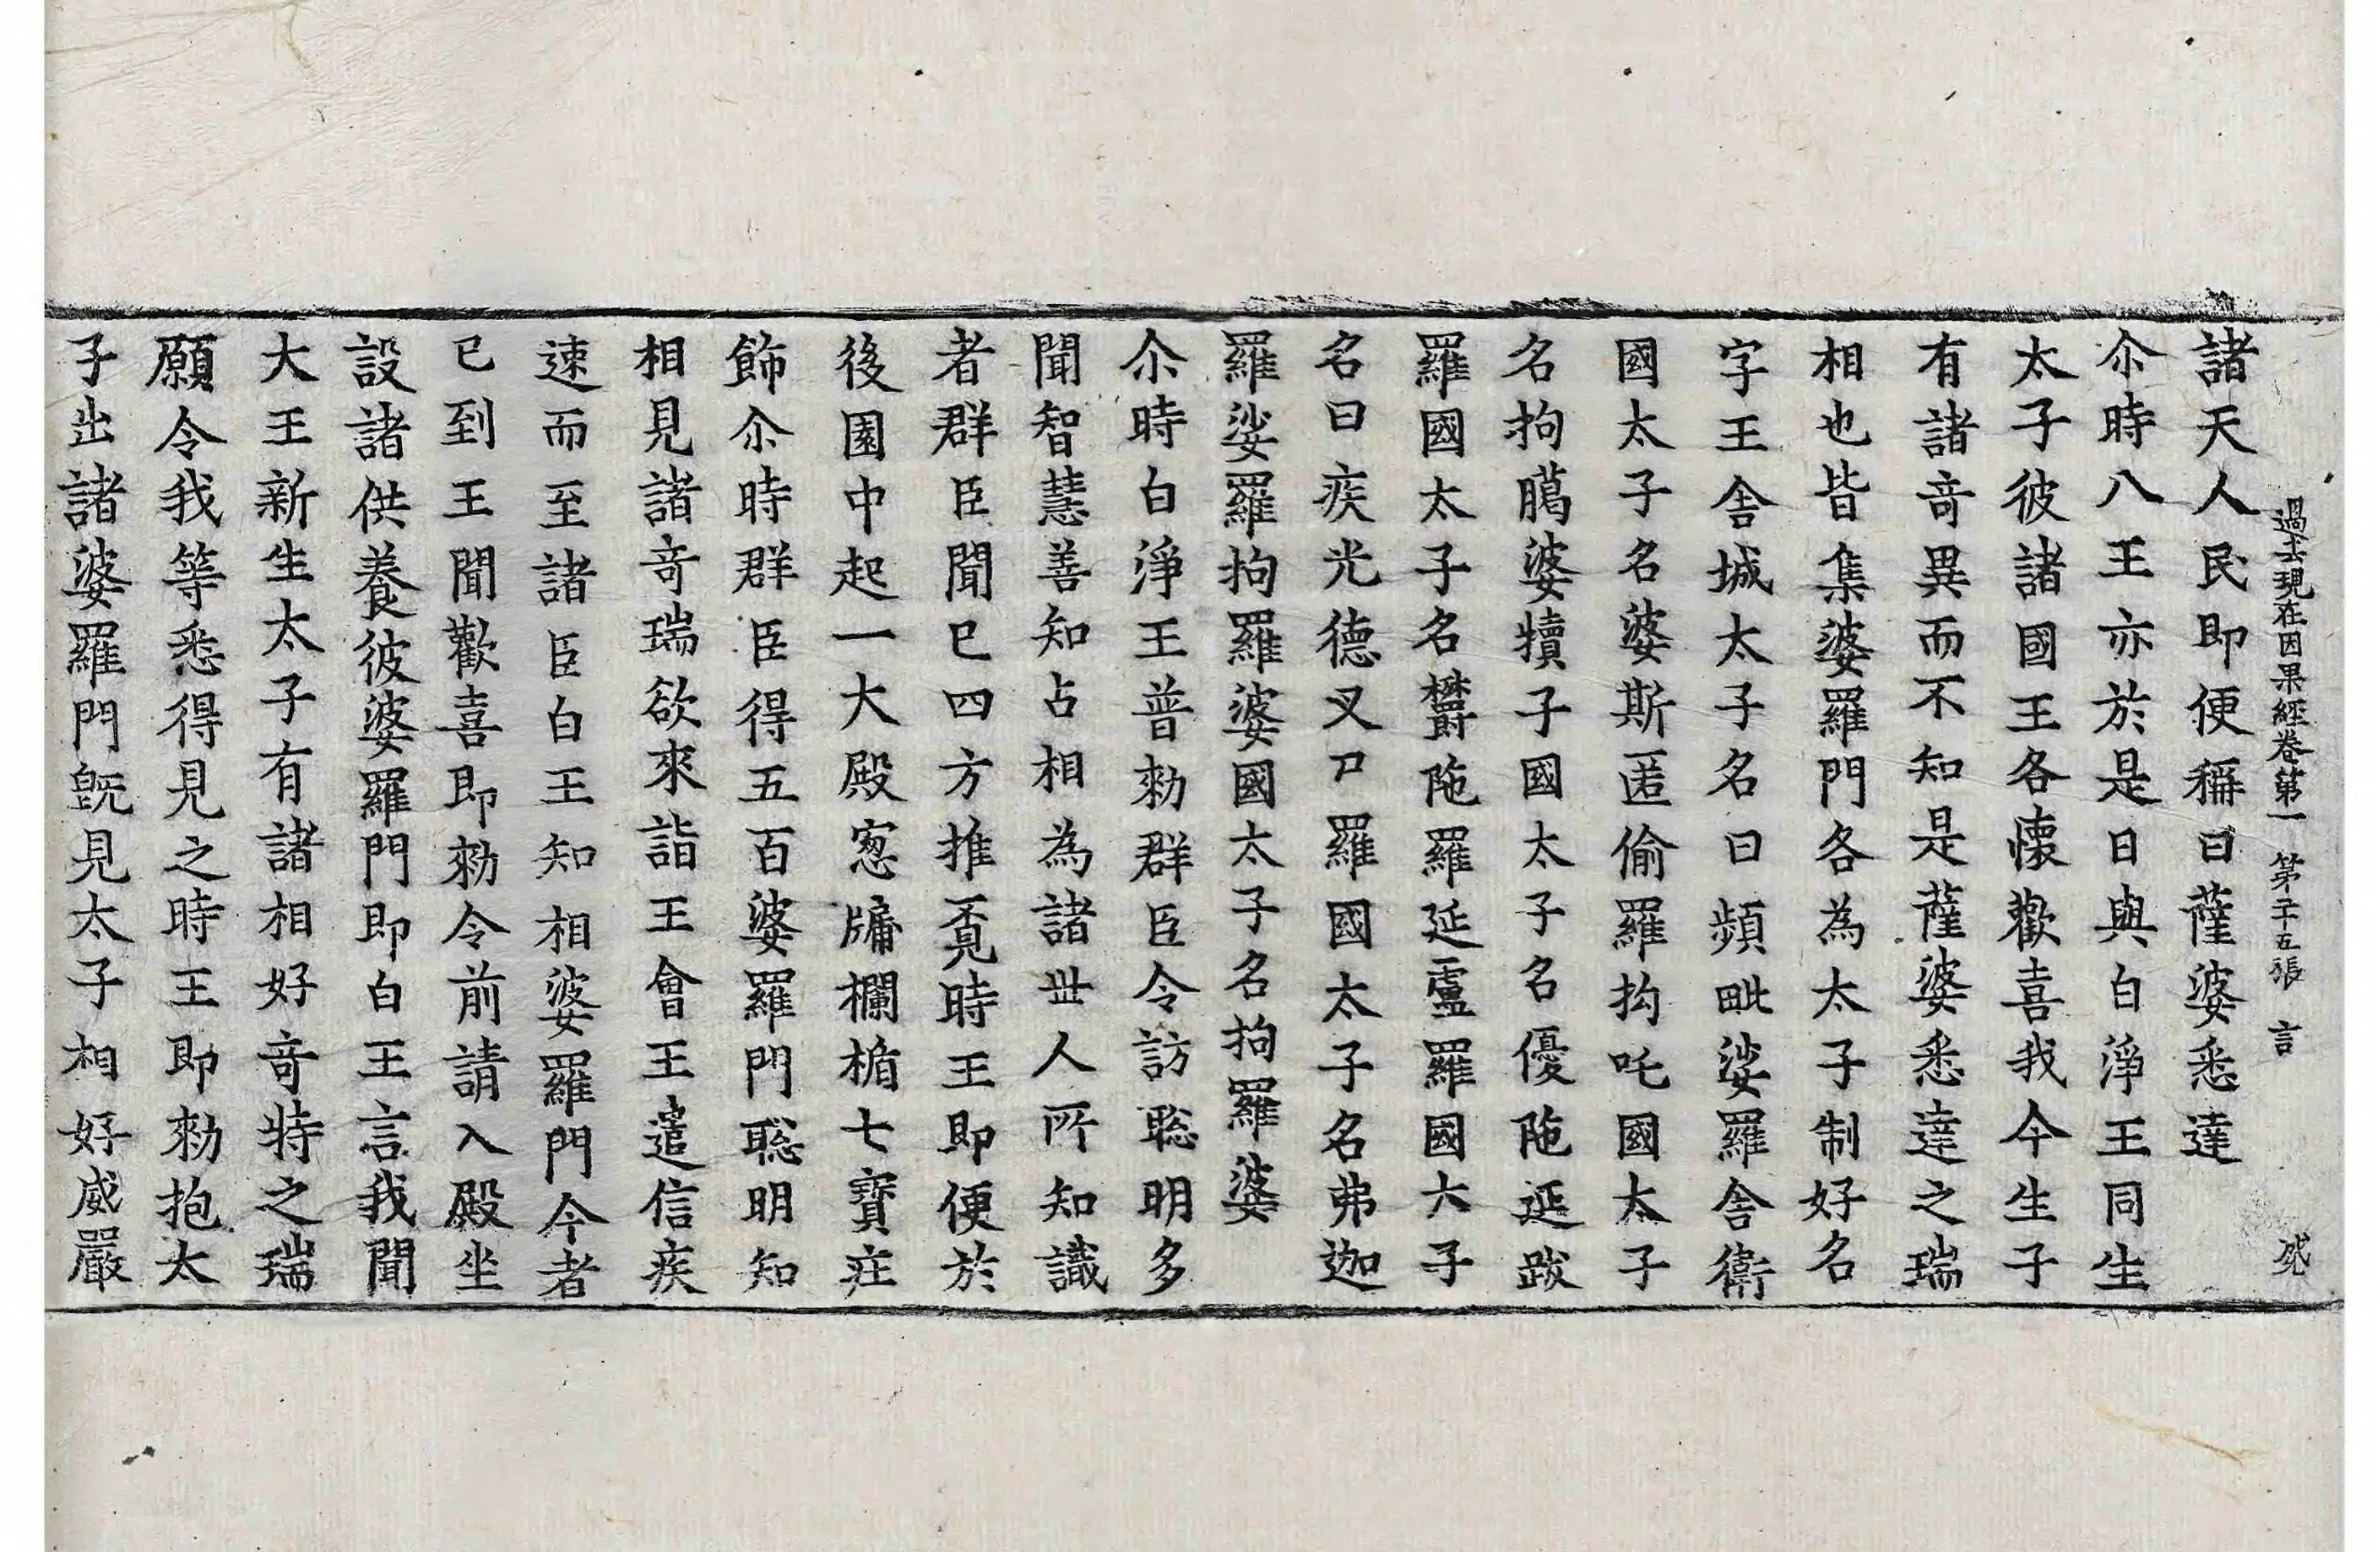 過去現在因果經卷第一 第二十五張 言
諸天人民即便稱曰薩婆悉達
尒時八王亦於是日與白淨王同生
太子彼諸國王各懷歡喜我今生子
有諸竒異而不知是薩婆悉達之瑞
相也皆集婆羅門各為太子制好名
字王舍城太子名曰頻毗娑羅舍衛
國太子名婆斯匿偷羅拘吒國太子
名拘臈婆犢子國太子名優陁延跋
羅國太子名欝陁羅延盧羅國太子
名曰疾光德叉尸羅國太子名弗迦
羅娑羅拘羅婆國太子名拘羅婆
尒時白淨王普勑群臣令訪聡明多
聞智慧善知占相為諸丗人所知識
者群臣聞已四方推覔時王即便於
後園中起一大殿窓牖欄楯七寳疰
飾尒時群臣得五百婆羅門聡明知
相見諸竒瑞欲來詣王會王遣信疾
速而至諸臣白王知相婆羅門今者
已到王聞歡喜即勑令前請入殿坐
設諸供養彼婆羅門即白王言我聞
大王新生太子有諸相好竒特之瑞
願令我等悉得見之時王即勑抱太
子出諸婆羅門旣見太子相好威嚴